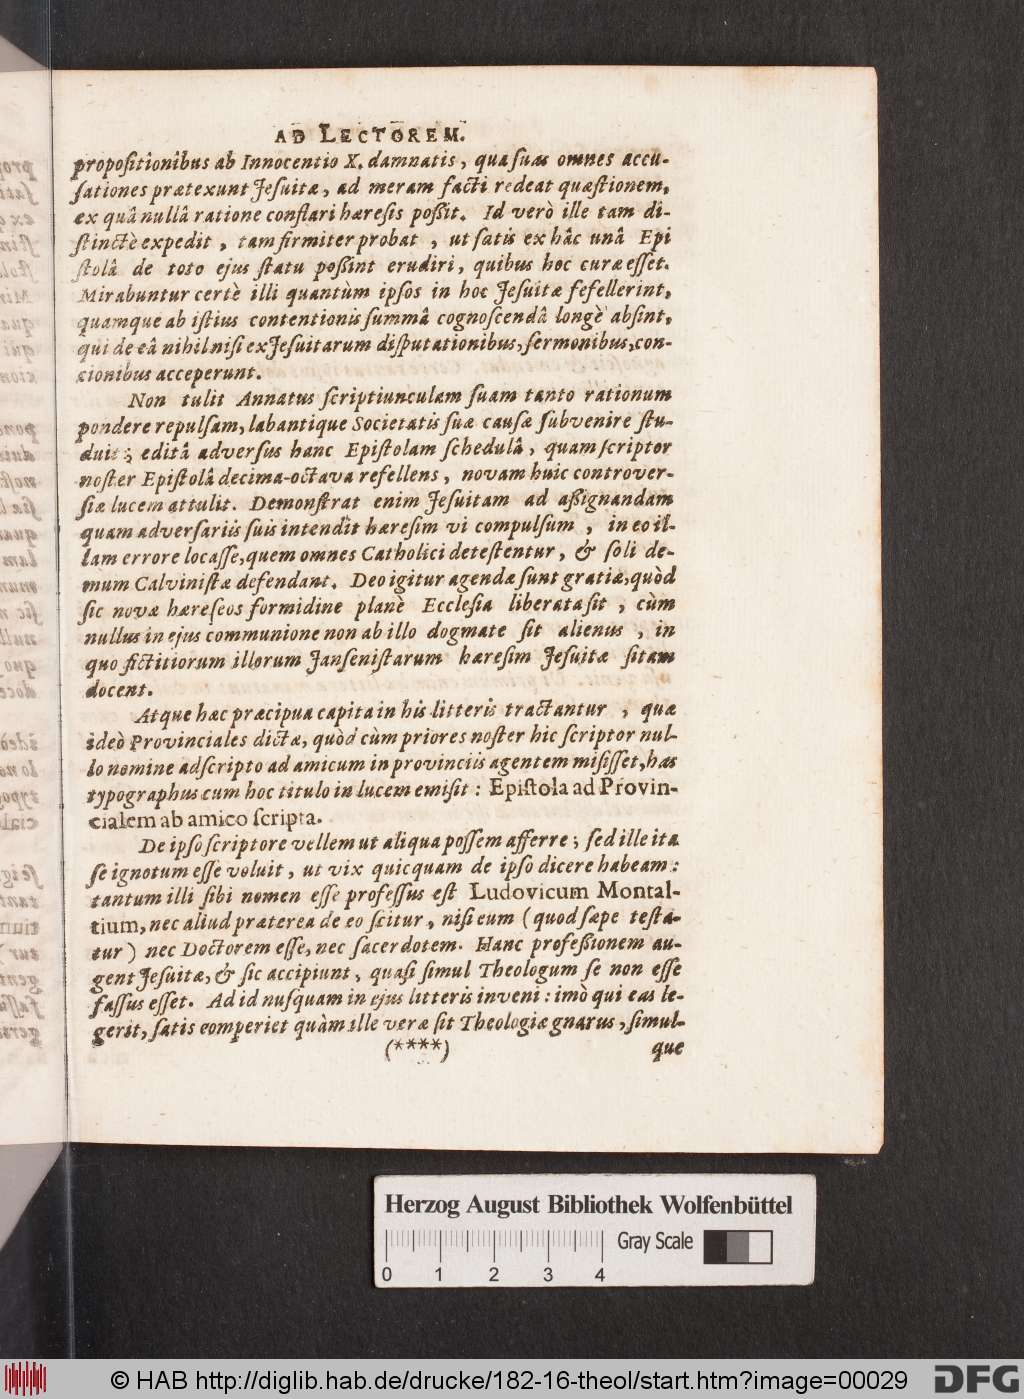 AD LECTOREM.
propoſitionibus ab Innocentio X. damnatis, qua ſuas omnes accu-
ſationes prætexunt Jeſuitæ, ad meram facti redeat quæſtionem,
ex quâ nullâ ratione conflari hæreſis poſſit. Id verò ille tam di-
ſtinctè expedit, tam firmiter probat, ut ſatis ex hâc unâ Epi
ſtolâ de toto ejus ſtatu poſſint erudiri, quibus hoc curæ eſſet.
Mirabuntur certè illi quantùm ipſos in hoc Jeſuitæ fefellerint,
quamque ab iſtius contentionis ſummâ cognoſcendâ longè abſint,
qui de eâ nihil niſi ex Jeſuitarum diſputationibus, ſermonibus, con-
cionibus acceperunt.
Non tulit Annatus ſcriptiunculam ſuam tanto rationum
pondere repulſam, labantique Societatis ſuæ cauſæ ſubvenire ſtu-
duit; editâ adverſus hanc Epiſtolam ſchedulâ, quam ſcriptor
noſter Epiſtolâ decima-octava refellens, novam huic controver-
ſiæ lucem attulit. Demonſtrat enim Jeſuitam ad aſſignandam
quam adverſariis ſuis intendit hæreſim vi compulſum, in eo il-
lam errore locaſſe, quem omnes Catholici deteſtentur, & ſoli de-
mum Calviniſtæ defendant. Deo igitur agendæ ſunt gratiæ, quòd
ſic novæ hæreſeos formidine planè Eccleſia liberata ſit, cùm
nullus in ejus communione non ab illo dogmate ſit alienus, in
quo fictitiorum illorum Janſeniſtarum hæreſim Jeſuitæ ſitam
docent.
Atque hæc præcipua capita in his litteris tractantur, quæ
ideò Provinciales dictæ, quòd cùm priores noſter hic ſcriptor nul-
lo nomine adſcripto ad amicum in provinciis agentem miſiſſet, has
typographus cum hoc titulo in lucem emiſit: Epiſtola ad Provin-
cialem ab amico ſcripta.
De ipſo ſcriptore vellem ut aliqua poſſem afferre; ſed ille ita
ſe ignotum eſſe voluit, ut vix quicquam de ipſo dicere habeam:
tantum illi ſibi nomen eſſe profeſſus eſt Ludovicum Montal-
tium, nec aliud præterea de eo ſcitur, niſi eum (quod ſæpe teſta-
tur) nec Doctorem eſſe, nec ſacerdotem. Hanc profeſſionem au-
gent Jeſuitæ, & ſic accipiunt, quaſi ſimul Theologum ſe non eſſe
faſſus eſſet. Ad id nuſquam in ejus litteris inveni: imò qui eas le-
gerit, ſatis comperiet quàm ille veræ ſit Theologiæ gnarus, ſimul-
(****) que
Herzog August Bibliothek Wolfenbüttel
Gray Scale
0 1 2 3 4
© HAB http://diglib.hab.de/drucke/182-16-theol/start.htm?image=00029
DFG